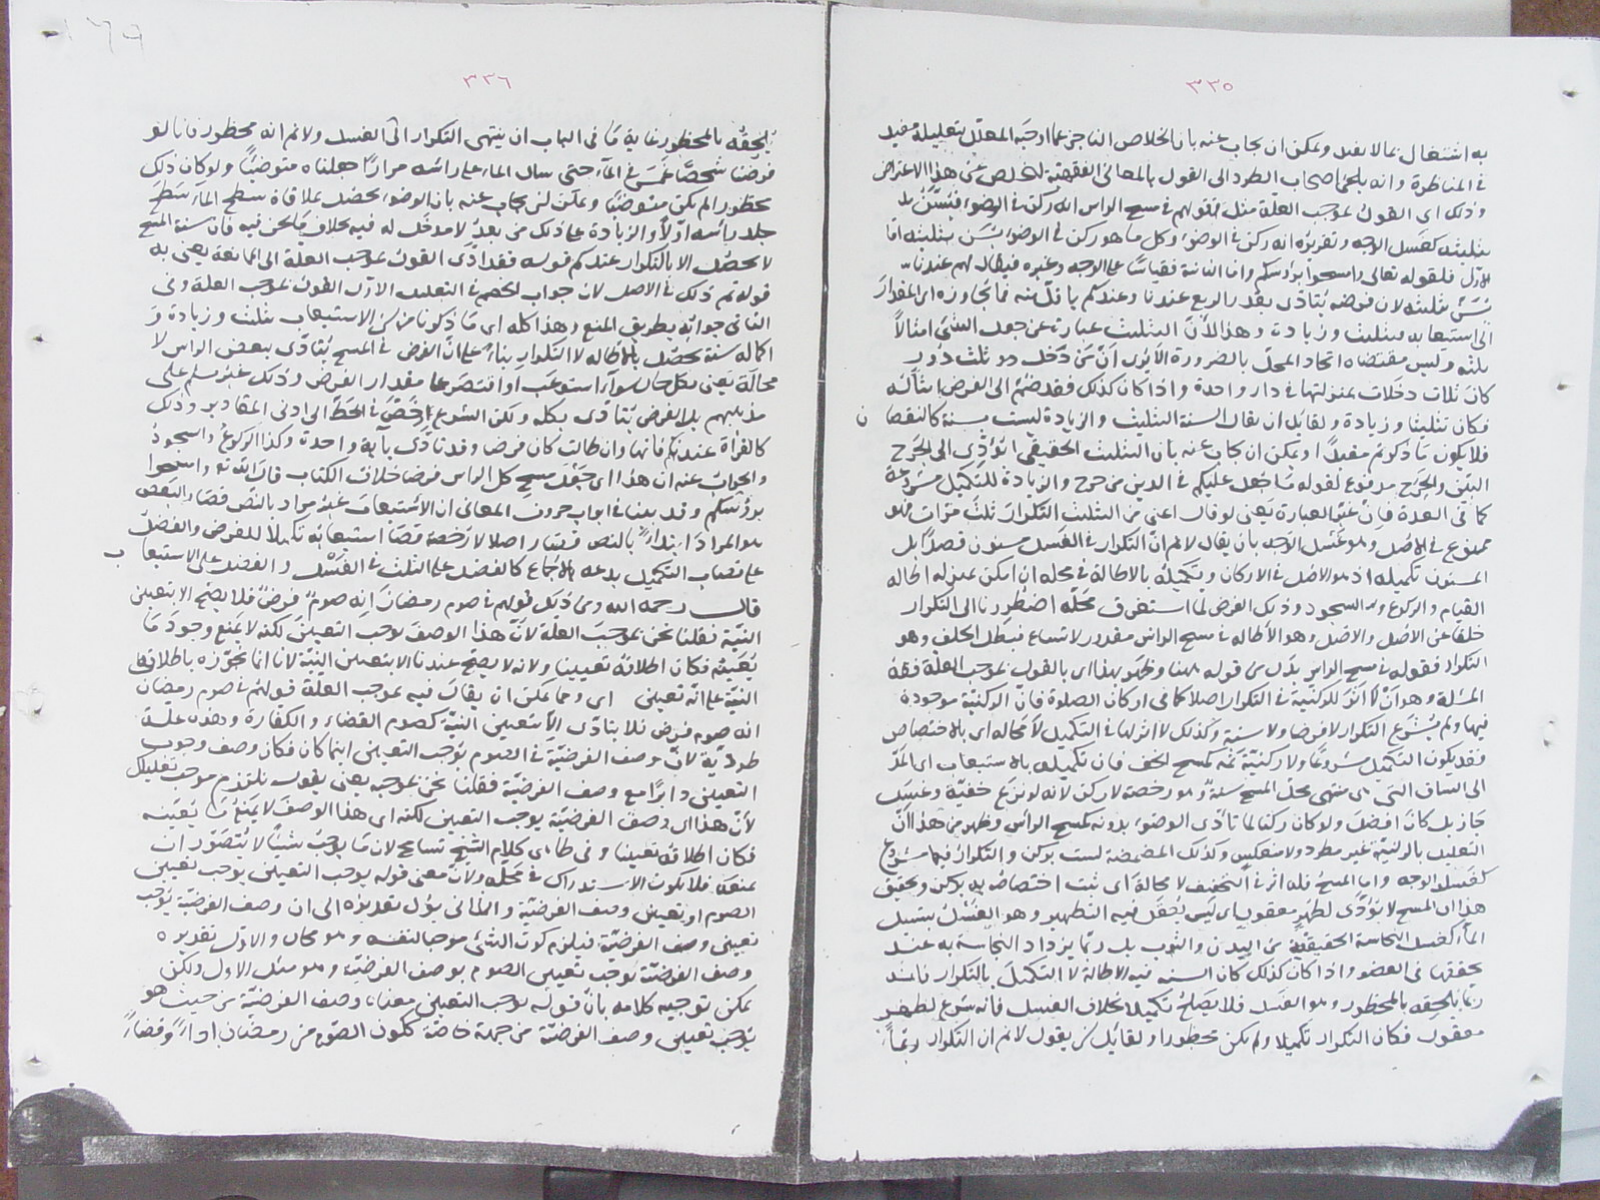 ٣٣٥
به اشتغال بما لا يفيد ويمكن ان يجاب عنه بان الخلاص الناجز عما اوجبه المعلل بتعليله مفيد
في المناظرة وانه يلجئ اصحاب الطرد الى القول بالمعاني الفقهية لتخلص عن هذا الاعتراض
وذلك اى القول بموجب العلة مثل قولهم في مسح الراس انه ركن في الوضوء فيسن
تثليثه كغسل الوجه وتقريره انه ركن في الوضوء وكل ما هو ركن في الوضوء يسن تثليثه اما
الاول فلقوله تعالى وامسحوا برؤسكم واما الثانية فقياسا على الوجه وغيره فيقال لهم عندنا
يسن تثليثه لان فرضه يتادى بقدر الربع عندنا وعندكم باقل منه فما يجاوزه
الى استيعابه فتثليث وزيادة وهذا لان التثليث عبارة عن جعل الشئ امثالا
ثلثه وليس مقتضاه اتحاد المحل بالضرورة الا يرى ان من دخل دور
كان ثلاث دخلات بمنزلتها في دار واحدة واذا كان كذلك فقد ضم الى الفرض امثاله
فكان تثليثا وزيادة ولقائل ان يقال السنة التثليث والزيادة ليست بسنة كالنقصان
فلا يكون ما ذكرتم مفيدا ويمكن ان يجاب عنه بان التثليث الحقيقي يؤدى الى الحرج
البين والحرج مدفوع لقوله ما جعل عليكم في الدين من حرج والزيادة للتكميل مشروعة
كما في العدة فان غير العبارة يعنى لو قال اعني من التثليث التكرار ثلث مرات فهو
ممنوع في الاصل وهو غسل الوجه بان يقال لانم ان التكرار في الغسل مسنون قصدا بل
المسنون تكميله اذ هو الاصل في الاركان وتكميله بالاطالة في محله ان امكن بمنزلة اطالة
القيام والركوع والسجود وذلك الفرض لما استغرق محله اضطررنا الى التكرار
خلفا عن الاصل والاصل وهو الاطالة في مسح الراس مقدور لاتساع فبطل الخلف وهو
التكرار فقوله في مسح الراس بدل من قوله ههنا وظهر بهذا اى بالقول بموجب العلة فقه
المسئلة وهو ان لا اثر للركنية في التكرار اصلا كما في اركان الصلوة فان الركنية موجودة
فيها ولم يشرع التكرار لا فرضا ولا سنة وكذلك لا اثر لها في التكميل لا محاله اى بلا اختصاص
فقد يكون التكميل مشروعا ولا ركنية ثمه كمسح الخف فان تكميله بالاستيعاب اى المد
الى الساق الذى هو منتهى محل المسح سنة وهو رخصة لا ركن لانه لو نزع خفيه وغسل
جاز بل كان افضل ولو كان ركنا لما تأدى الوضوء بدونه كمسح الراس وظهر من هذا ان
التعليل بالركنية غير مطرد ولا منعكس وكذلك المضمضة ليست بركن والتكرار فيها مشروع
كغسل الوجه واما المسح فله اثر في التخفيف لا محالة اى ثبت اختصاص به بركن وتحقيق
هذا ان المسح لا يؤدى لطهر معقول اى ليس يعقل فيه التطهير وهو الغسل بتسييل
الماء كغسل النجاسة الحقيقية من البدن والثوب بل ربما يزداد النجاسة به عند
تحققها في العضو واذا كان كذلك كان السنة فيه الاطالة لا التكميل بالتكرار فانه
ربما يلحقه بالمحظور وهو الغسل فلا يصلح تكميلا بخلاف الغسل فانه شرع لطهر
معقول فكان التكرار تكميلا ولم يكن محظورا ولقائل ان يقول لانم ان التكرار ربما
٣٣٦
يلحقه بالمحظور غاية ما في الباب ان ينتهى التكرار الى الغسل ولانم انه محظور فانا لو
فرضنا شخصا غمس في الماء حتى سال الماء على راسه مرارا جعلناه متوضيا ولو كان ذلك
محظورا لم يكن متوضيا ويمكن ان يجاب عنه بان الوضوء يحصل بملاقاة سطح الماء سطح
جلد رأسه اولا والزيادة على ذلك من بعد لا مدخل له فيه بخلاف ما نحن فيه فان سنة المسح
لا يحصل الا بالتكرار عندكم قوله فقد ادى القول بموجب العلة الى الممانعة يعنى به
قوله ثم ذلك في الاصل لان جواب الخصم في التعليل الاول القول بموجب العلة وفى
الثاني جوابه بطريق المنع وهذا كله اى ما ذكرنا من كون الاستيعاب تثليث وزيادة و
اكماله سنة يحصل بالاطالة لا التكرار بناء على ان الفرض في المسح يتأدى ببعض الراس لا
محالة يعنى بكل حال سواء استوعب او اقتصر على مقدار الفرض وذلك غير مسلم على
مذهبهم بل الفرض يتأدى بكله ولكن الشرع رخص في الحط الى ادنى المقادير وذلك
كالقراة عندكم فانها وان طالت كان فرضا وقد تأدى بآية واحدة وكذا الركوع والسجود
والجواب عنه ان هذا اى جعل مسح كل الراس فرضا خلاف الكتاب قال الله تع وامسحوا
برؤسكم وقد بينا في ابواب حروف المعاني ان الاستيعاب غير مراد بالنص قصدا والبعض
هو المراد ابتداء بالنص فصار اصلا لا رخصة فصار استيعابه تكميلا للفرض والفضل
على نصاب التكميل بدعة بالاجماع كالفضل على الثلث في الغسل والفضل على الاستيعاب
قال رحمه الله ومن ذلك قولهم في صوم رمضان انه صوم فرض فلا يصح الا بتعيين
النية فقلنا نحن بموجب العلة لان هذا الوصف يوجب التعيين لكنه لا يمنع وجود ما
يعينه فكان اطلاقه تعيينا ولانه لا يصح عندنا الا بتعيين النية لانا انما نجوزه باطلاق
النية على انه تعيين اى ومما يمكن ان يقال فيه بموجب العلة قولهم في صوم رمضان
انه صوم فرض فلا يتادى الا بتعيين النية كصوم القضاء والكفارة وهذه علة
طردية لان وصف الفرضية في الصوم يوجب التعيين اينما كان فكان وصف وجوب
التعيين دايرا مع وصف الفرضية فقلنا نحن بموجبه يعنى يقول نلتزم موجب تعليلك
لان هذا اى وصف الفرضية يوجب التعيين لكنه اى هذا الوصف لا يمنع ما يعينه
فكان اطلاقه تعيينا وفى ظاهر كلام الشيخ تسامح لان ما يوجب شيئا لا يتصور ان
يمنعه فلا يكون الاستدراك في محله ولان معنى قوله يوجب التعيين يوجب تعيين
الصوم او تعيين وصف الفرضية والثاني يؤل تقديره الى ان وصف الفرضية يوجب
تعيين وصف الفرضية فيلزم كون الشئ موجبا لنفسه وهو محال والاول تقديره
وصف الفرضية يوجب تعيين الصوم بوصف الفرضية وهو مثل الاول ولكن
يمكن توجيه كلامه بان قوله يوجب التعيين معناه وصف الفرضية من حيث هو
يوجب تعيين وصف الفرضية من جهة خاصة ككون الصوم من رمضان اداء وقضاء